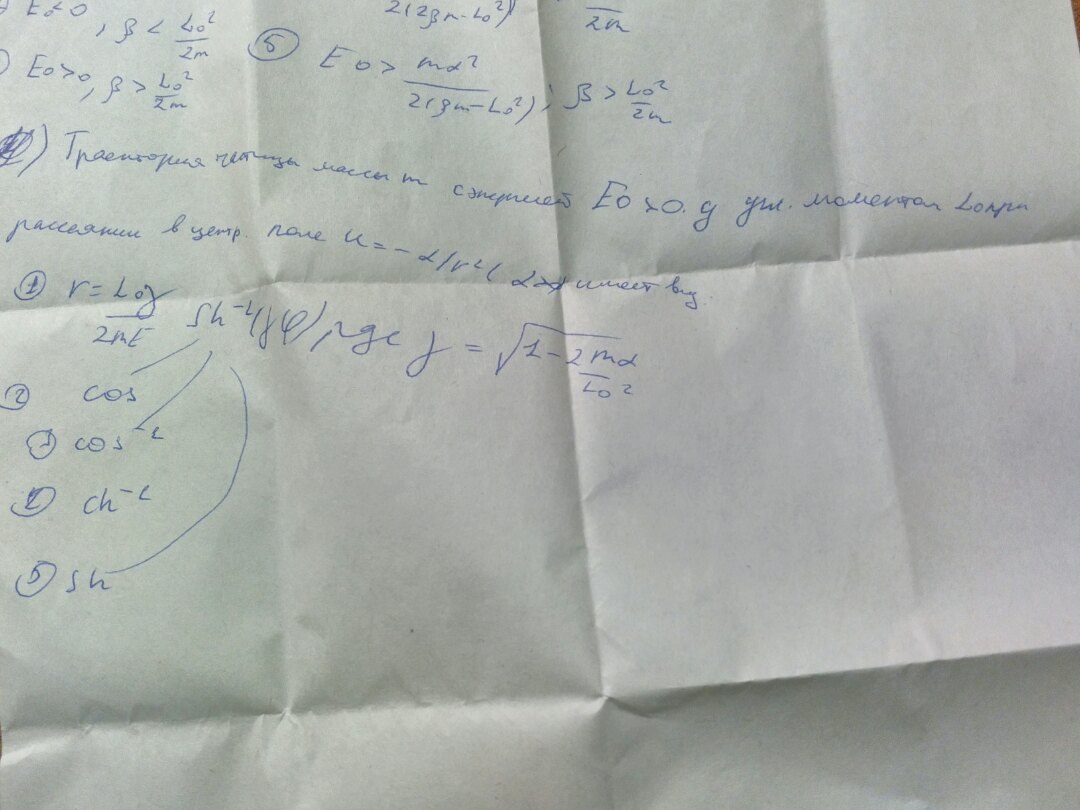 E<0, β < L₀²/2m
2(2βm-L₀²) 2m
E₀>0, β > L₀²/2m
⑤ E₀ > mα²/2(βm-L₀²), β > L₀²/2m
) Траектория частицы массы m с энергией E₀>0. д угл. моментом L₀ при
рассеянии в центр. поле U = -α/r² ( α>0 имеет вид.
① r = L₀γ/2mE sh⁻¹(γφ), где γ = √(1-2mα/L₀²)
② cos
③ cos⁻¹
ch⁻¹
⑤ sh